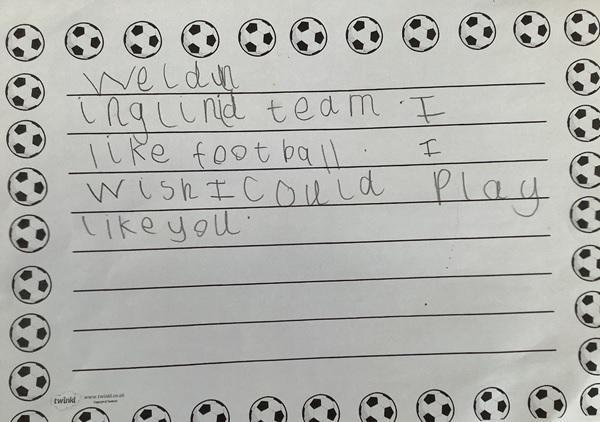 weldun
inglind team. I
like football. I
wish I could play
like you.
twinkl www.twinkl.co.uk